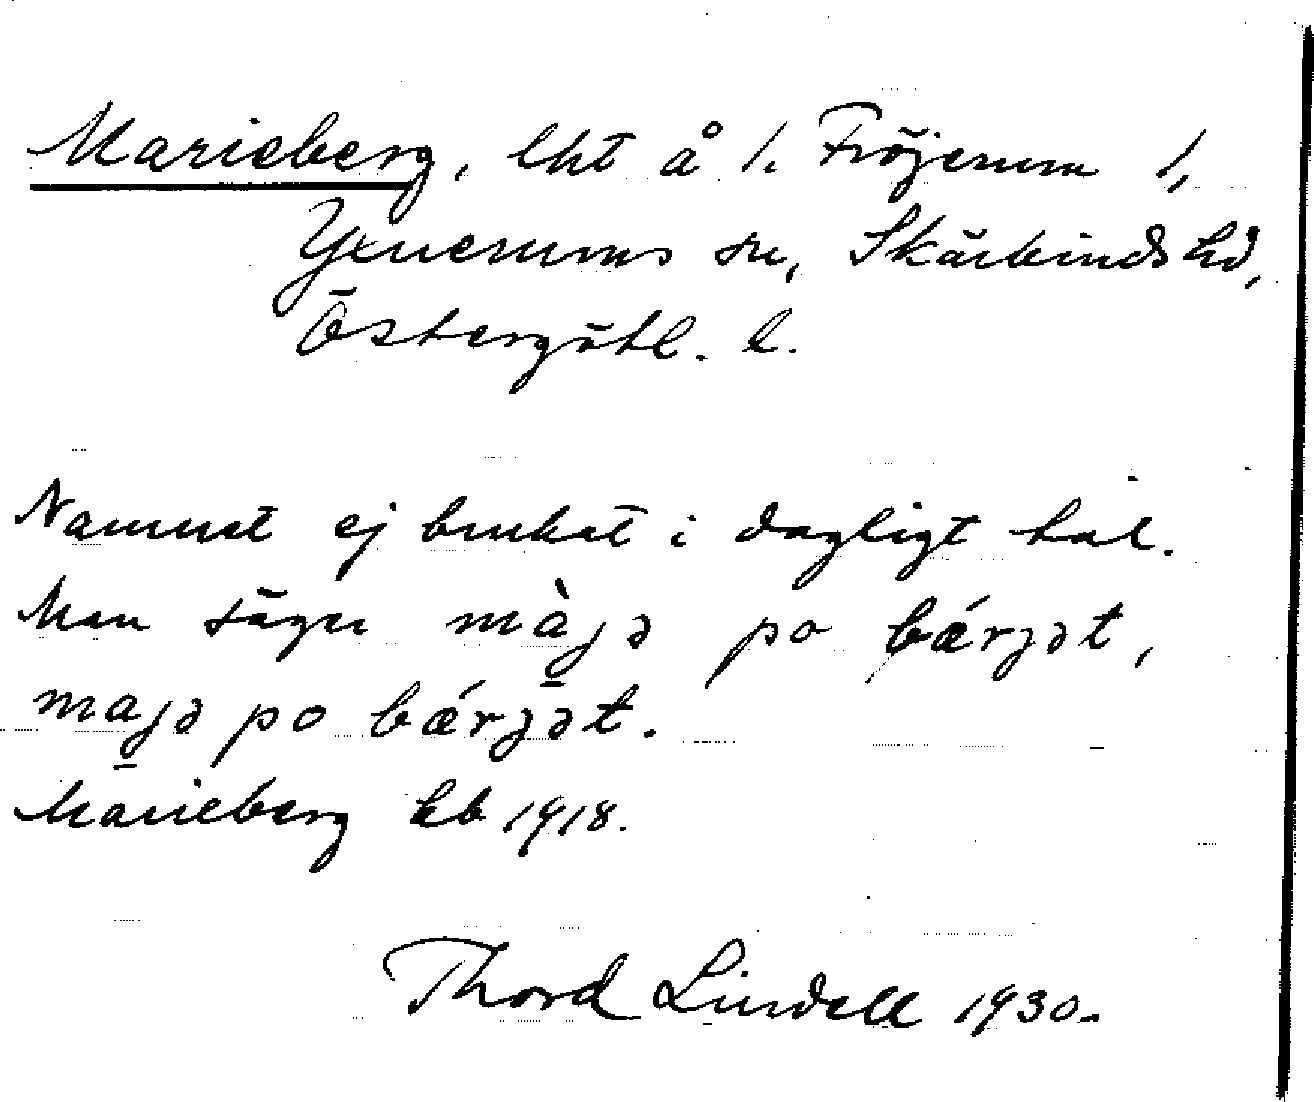 Marieberg, lht å 1. Fröjerum 1,
Yxnerums sn, Skärkinds hd,
Östergötl. l.
Namnet ej brukat i dagligt tal.
Man säger màjə po bǽrjət,
majə po bǽrjət.
Marieberg kb 1918.
Thord Lindell 1930.